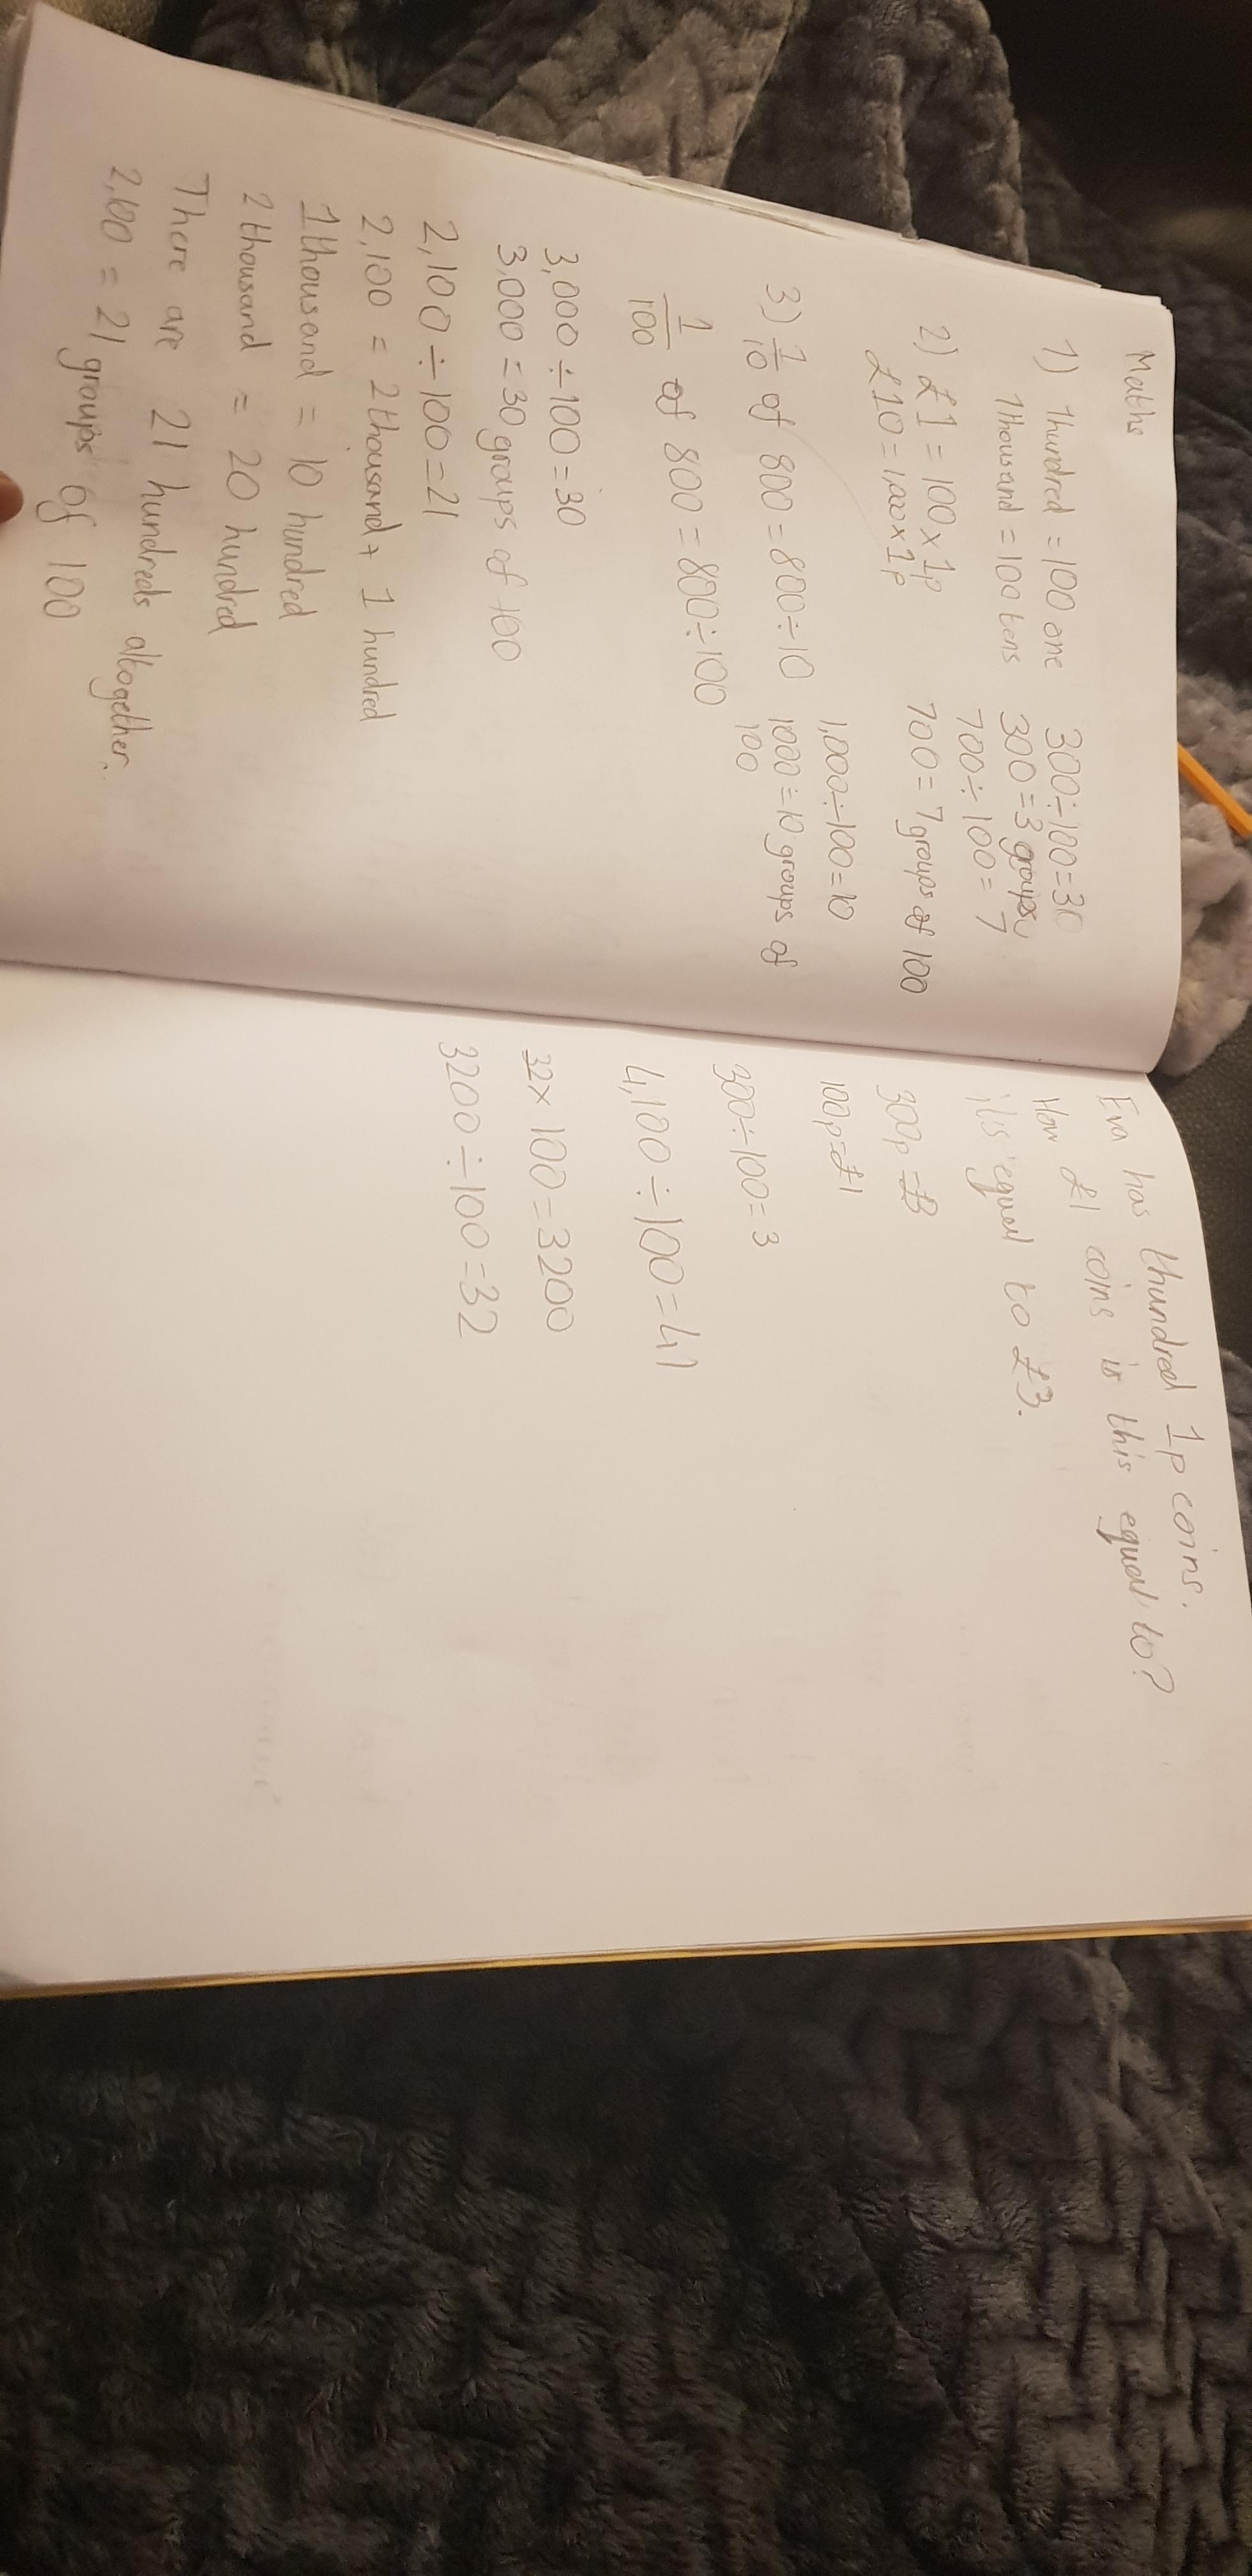 Maths
1) 1hundred = 100 one
1thousand = 100 tens
2) £1 = 100 x 1p
£10 = 1,000 x 1p
3) 1/10 of 800 = 800 ÷ 10
1/100 of 800 = 800 ÷ 100
300 ÷ 100 = 30
300 = 3 groups
700 ÷ 100 = 7
700 = 7 groups of 100
1,000 ÷ 100 = 10
1000 = 10 groups of
100
3,000 ÷ 100 = 30
3,000 = 30 groups of 100
2,100 ÷ 100 = 21
2,100 = 2 thousand + 1 hundred
1 thousand = 10 hundred
2 thousand = 20 hundred
There are 21 hundreds altogether.
2,100 = 21 groups of 100
Eva has 1hundred 1p coins.
How £1 coins is this equal to?
its equal to £3.
300p = £3
100p = £1
300 ÷ 100 = 3
4,100 ÷ 100 = 41
32 x 100 = 3200
3200 ÷ 100 = 32